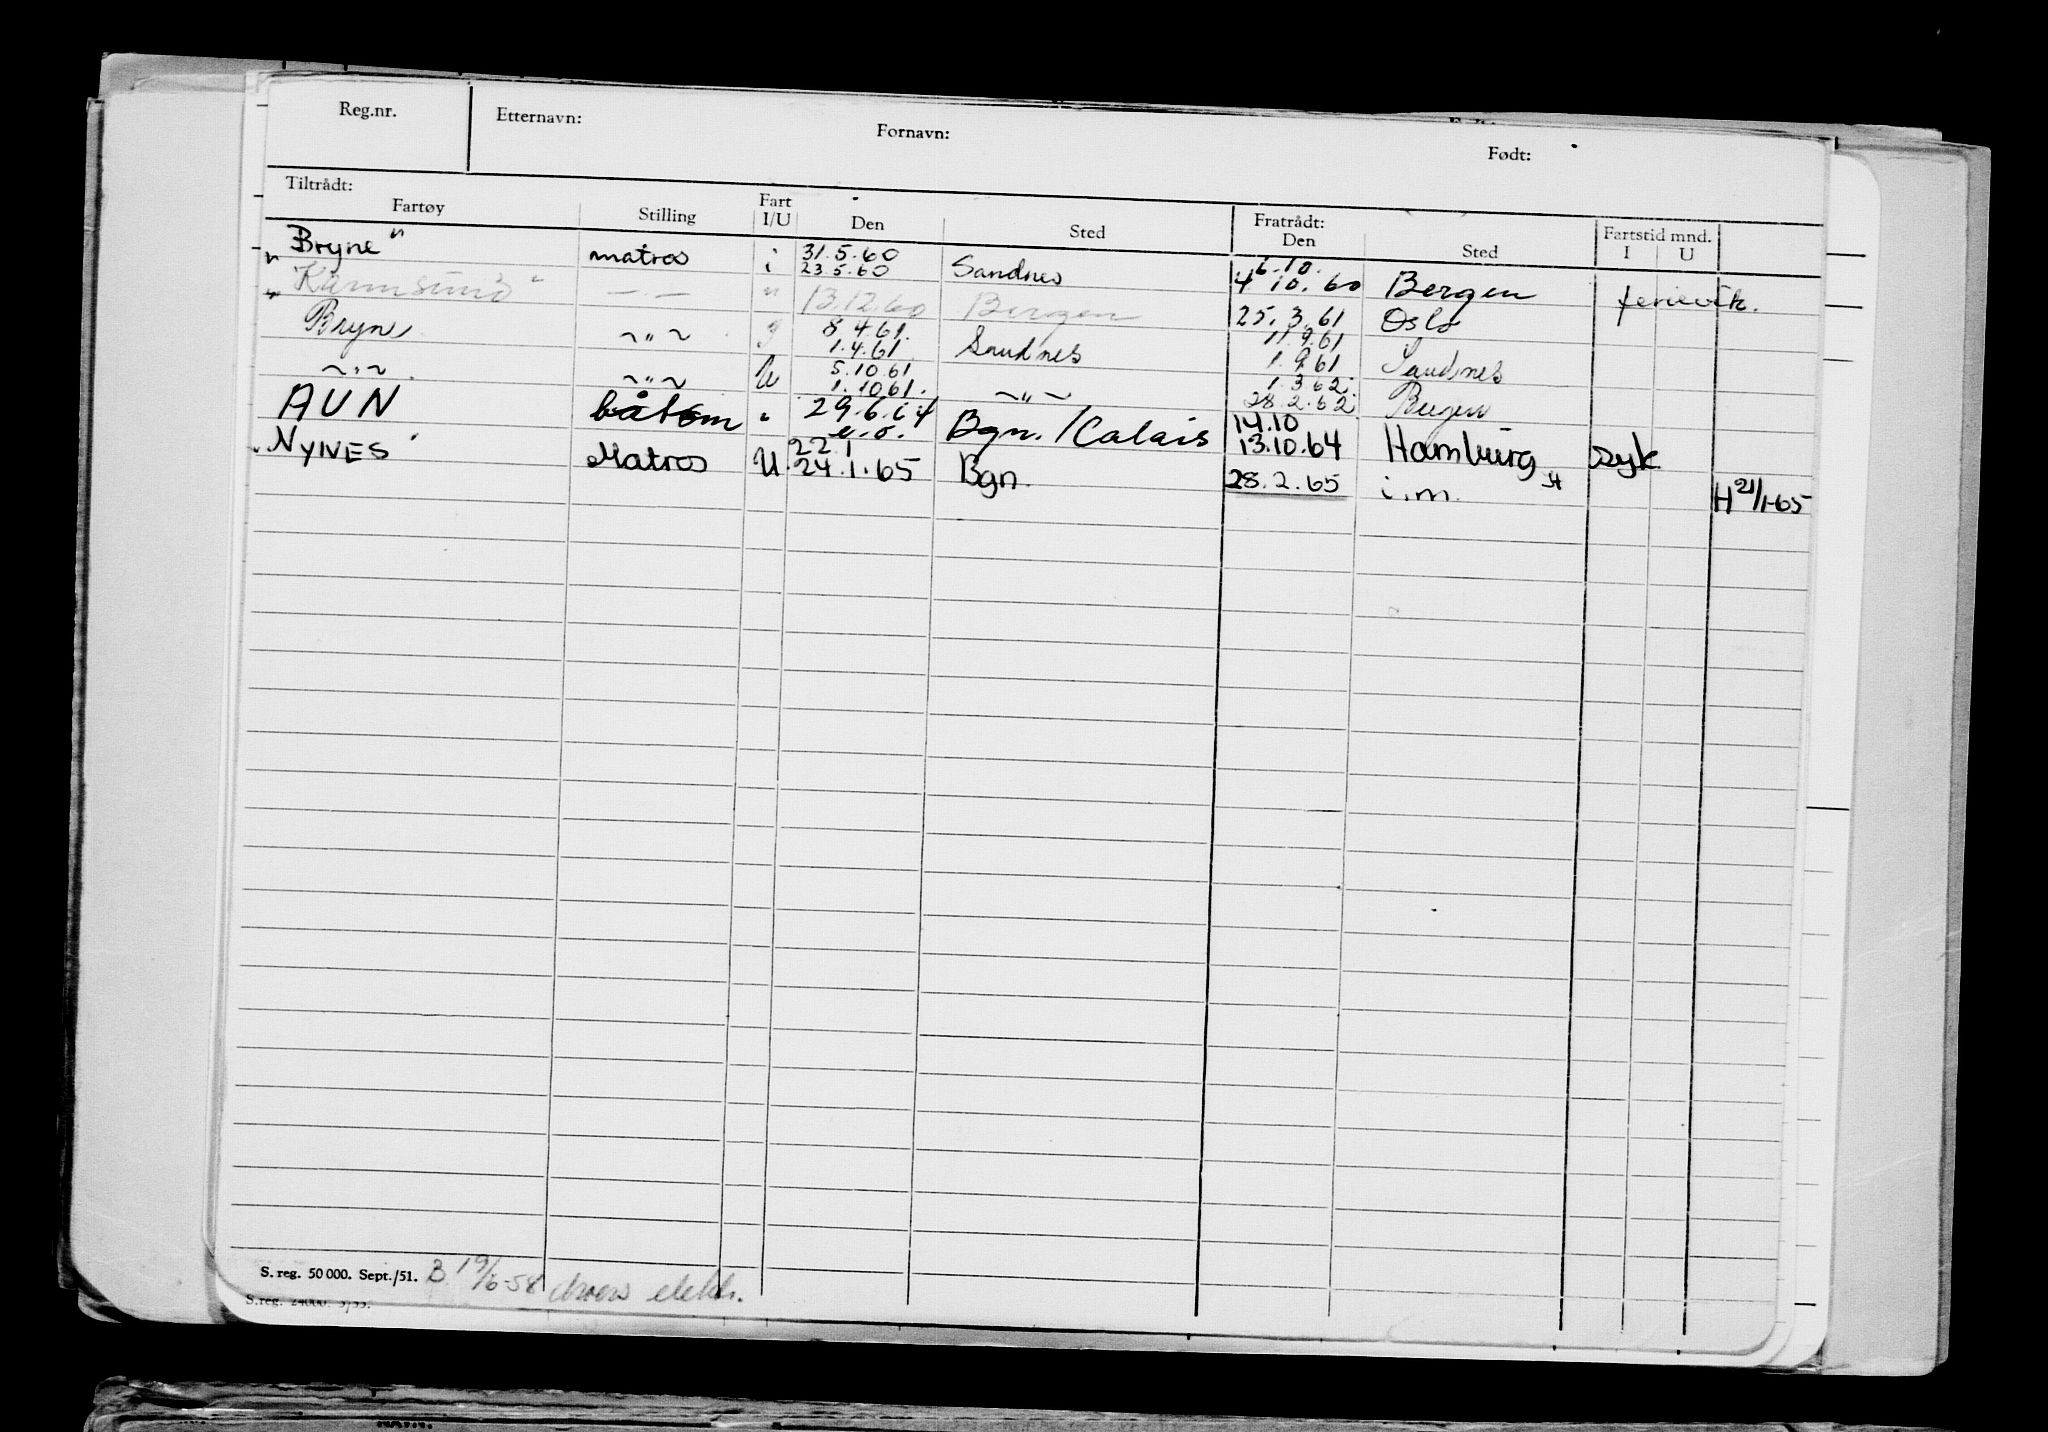 Reg.nr. Etternavn: Fornavn: Født:
Tiltrådt: Fratrådt:
Fartøy Stilling Fart I/U Den Sted Den Sted Fartstid mnd. I U
Bryne" matros i 31.5.60 23.5.60 Sandnes 6.10. 4.10.60 Bergen ferievik.
"Karmsund" — . — " 13.12.60 Bergen 25.3.61 Oslo
Bryne ~ " ~ 8.4.61. 1.4.61. Sandnes 11.9.61 1.9.61 Sandnes
~ " ~ ~ " ~ U 5.10.61 1.10.61. ~ " ~ 1.3.62. 28.2.62. Bergen
AUN båtsm " 29.6.64 Bgn. / Calais 14.10 13.10.64 Hamburg syk
"NYNES" Matros U 22.1 24.1.65 Bgn. 28.2.65 i.m. H 21/1-65
S. reg. 50 000. Sept./51. B 19/6-58
S.reg. 24000. 3/55.